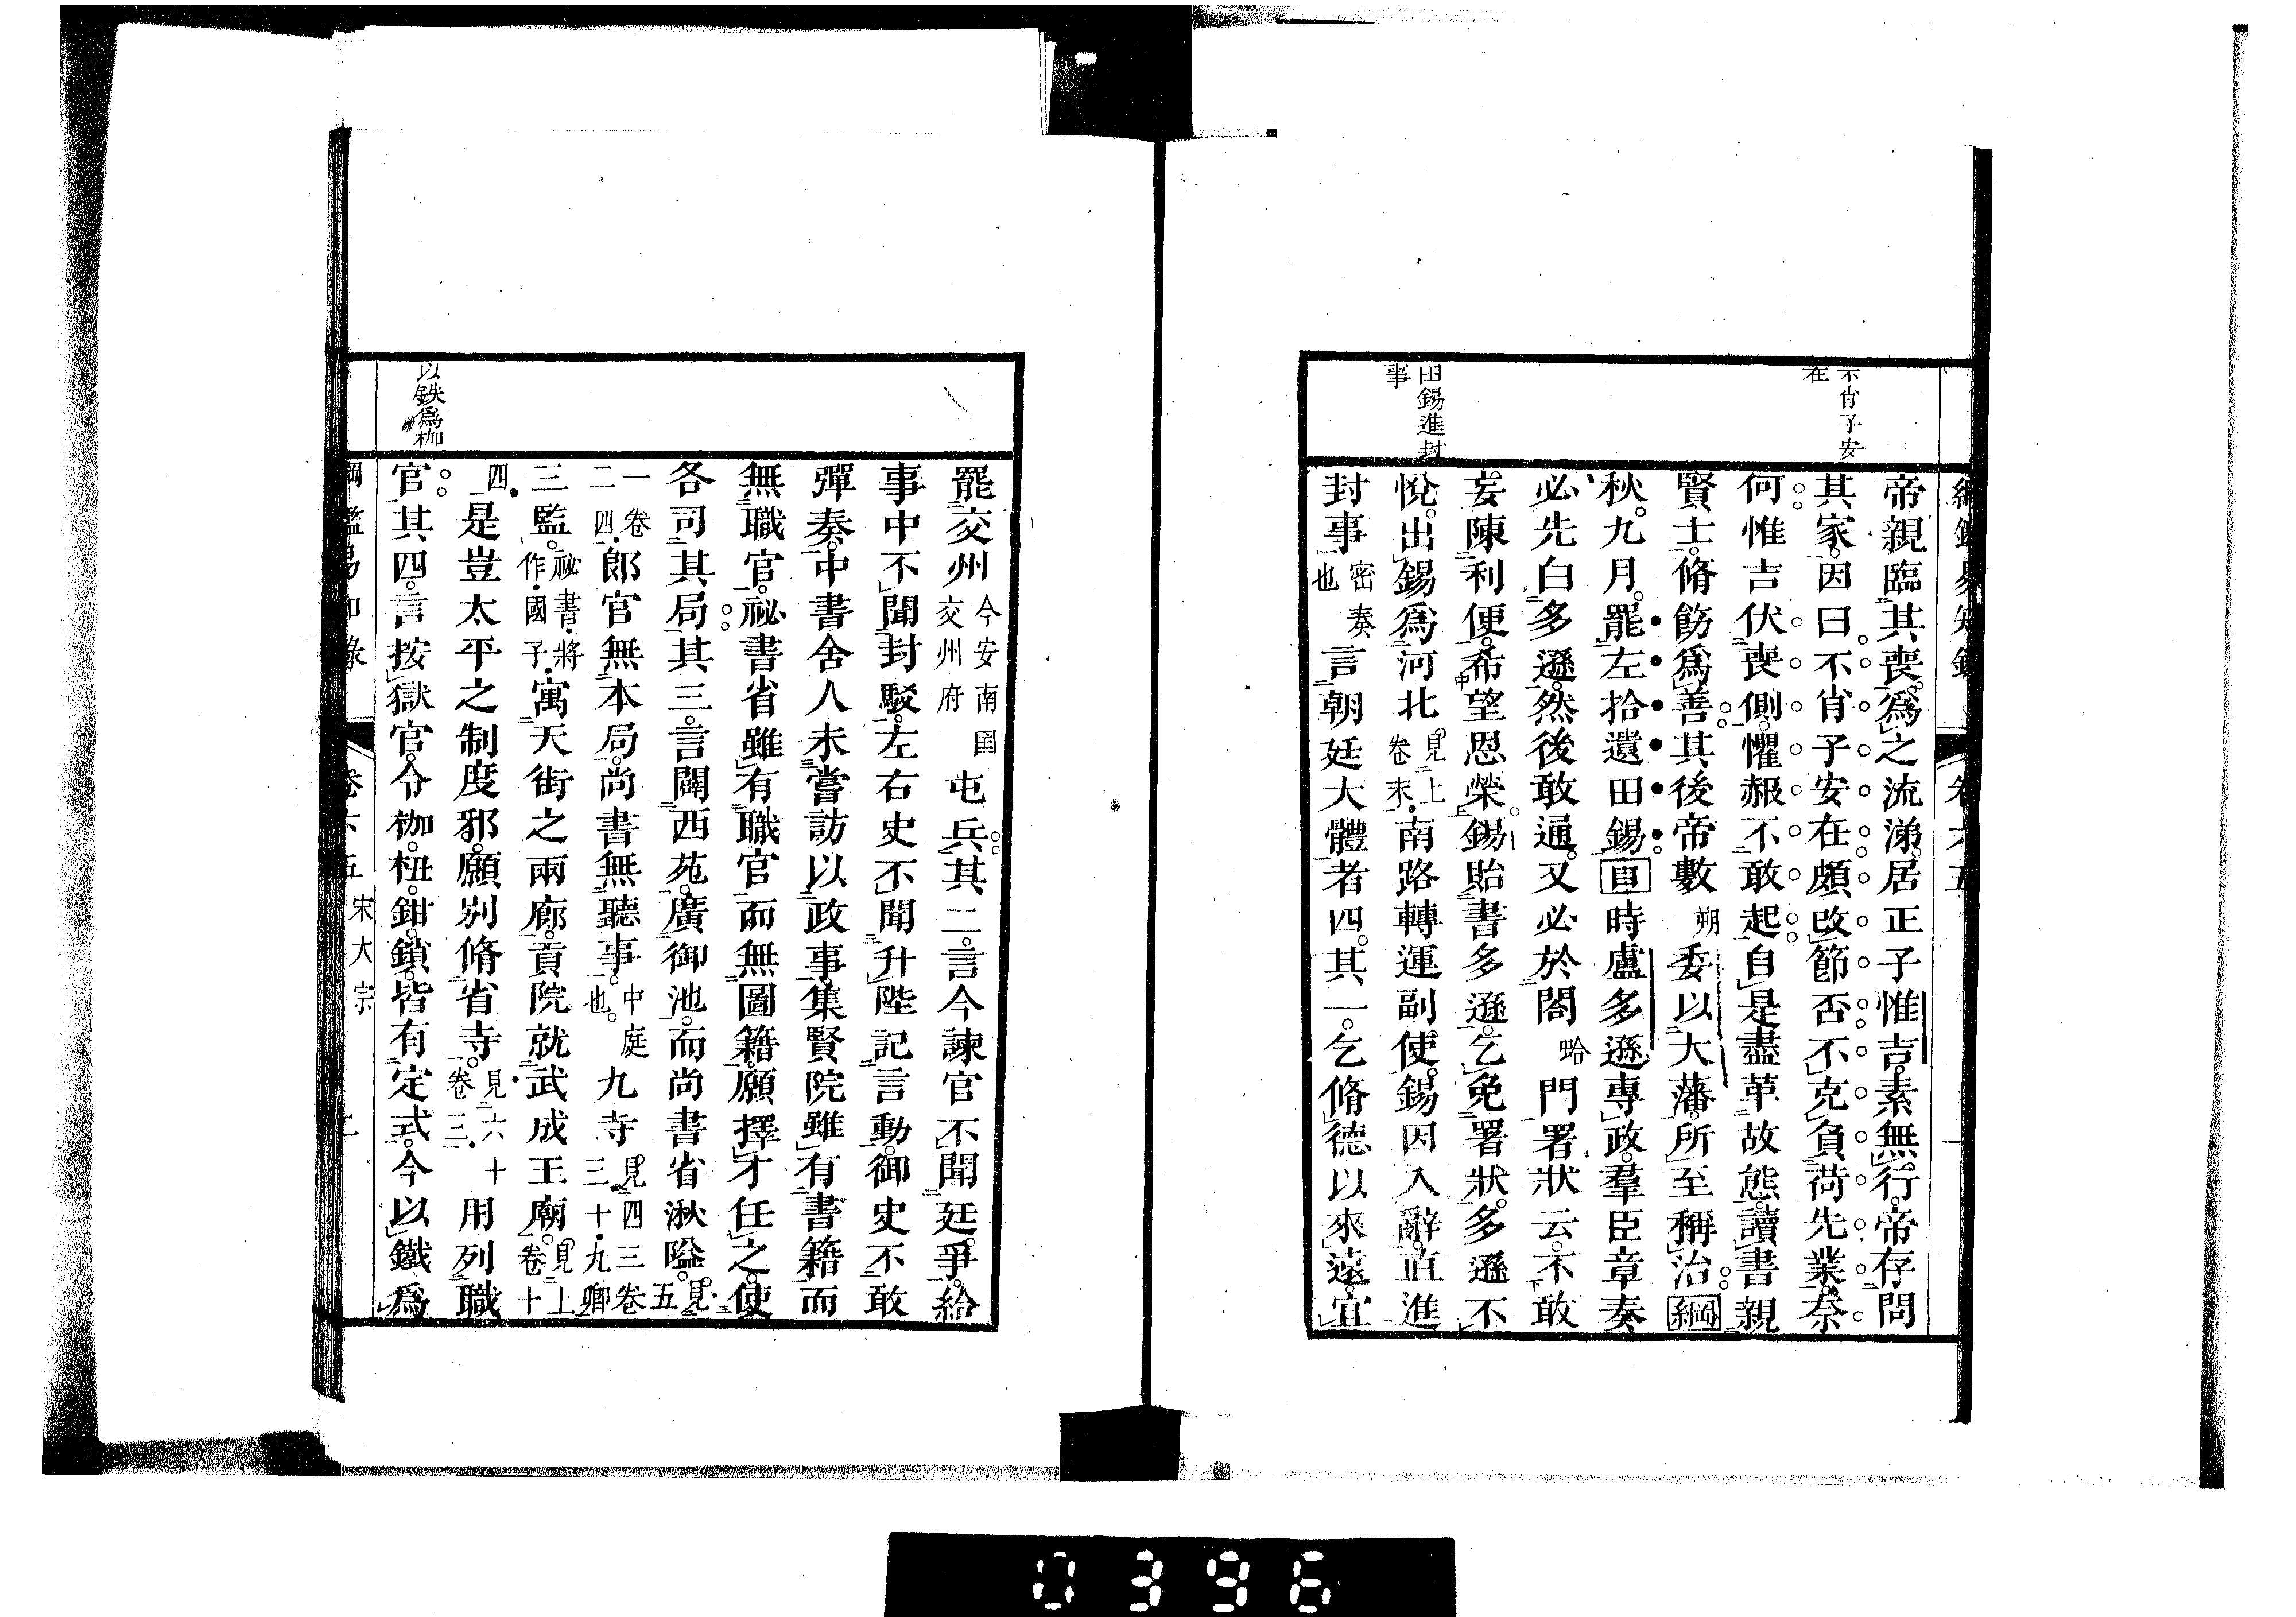 不肖子安
在
田錫進封
事
帝親臨其喪爲之流涕居正子惟吉素無行帝存問
其家因曰不肖子安在頗改節否不克負荷先業奈
何惟吉伏喪側懼赧不敢起自是盡革故態讀書親
賢士脩飭爲善其後帝數朔委以大藩所至稱治綱
秋九月罷左拾遺田錫目時盧多遜專政羣臣章奏
必先白多遜然後敢通又必於閤蛤門署狀云不敢
妄陳利便希望恩榮錫貽書多遜乞免署狀多遜不
悅出錫爲河北見上卷末南路轉運副使錫因入辭直進
封事密奏也言朝廷大體者四其一乞脩德以來遠宜
以鉄爲枷
罷交州今安南國交州府屯兵其二言今諫官不聞廷爭給
事中不聞封駁左右史不聞升陛記言動御史不敢
彈奏中書舍人未嘗訪以政事集賢院雖有書籍而
無職官祕書省雖有職官而無圖籍願擇才任之使
各司其局其三言闢西苑廣御池而尚書省湫隘見五
一卷二四郎官無本局尚書無聽事中庭也九寺見四三卷三十九卿
三監祕書將作國子寓天街之兩廊貢院就武成王廟見上卷十
四是豈太平之制度邪願別脩省寺見六十卷三用列職
官其四言按獄官令枷杻鉗鎖皆有定式今以鐵爲
卷六五 宋太宗
0396